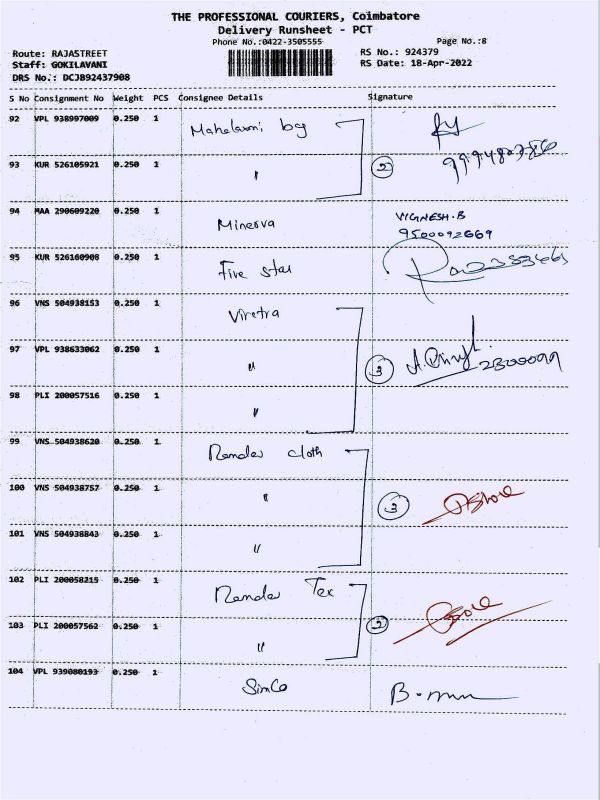 THE PROFESSIONAL COURIERS, Coimbatore
Delivery Runsheet - PCT
Phone No.:0422-3505555 Page No.:8
Route: RAJASTREET RS No.: 924379
Staff: GOKILAVANI RS Date: 18-Apr-2022
DRS No.: DCJB92437908
S No Consignment No Weight PCS Consignee Details Signature
92 VPL 938997009 0.250 1 bag
93 KUR 526105921 0.250 1 " 2
94 MAA 290609220 0.250 1 Minerva VIGNESH.B
9500092669
95 KUR 526160908 0.250 1 Five star
96 VNS 504938153 0.250 1 Viretra
97 VPL 938633062 0.250 1 " 3
98 PLI 200057516 0.250 1 "
99 VNS 504938620 0.250 1 cloth
100 VNS 504938757 0.250 1 " 3
101 VNS 504938843 0.250 1 "
102 PLI 200058215 0.250 1 Tex
103 PLI 200057562 0.250 1 " 2
104 VPL 939080193 0.250 1 SimCo